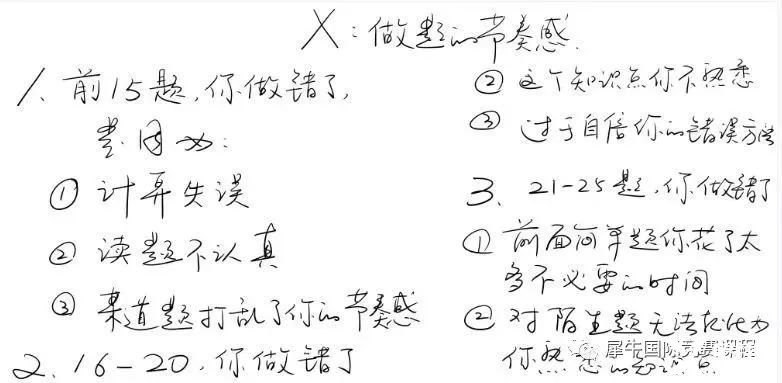 X：做题的节奏感
1、前15题，你做错了，
是因为：
① 计算失误
② 读题不认真
③ 某道题打乱了你的节奏感
2、16-20，你做错了
② 这个知识点你不熟悉
③ 过于自信你的错误方法
3、21-25题，你做错了
① 前面简单题你花了太
多不必要的时间
② 对陌生题无法转化为
你熟悉的知识点
犀牛国际竞赛课程